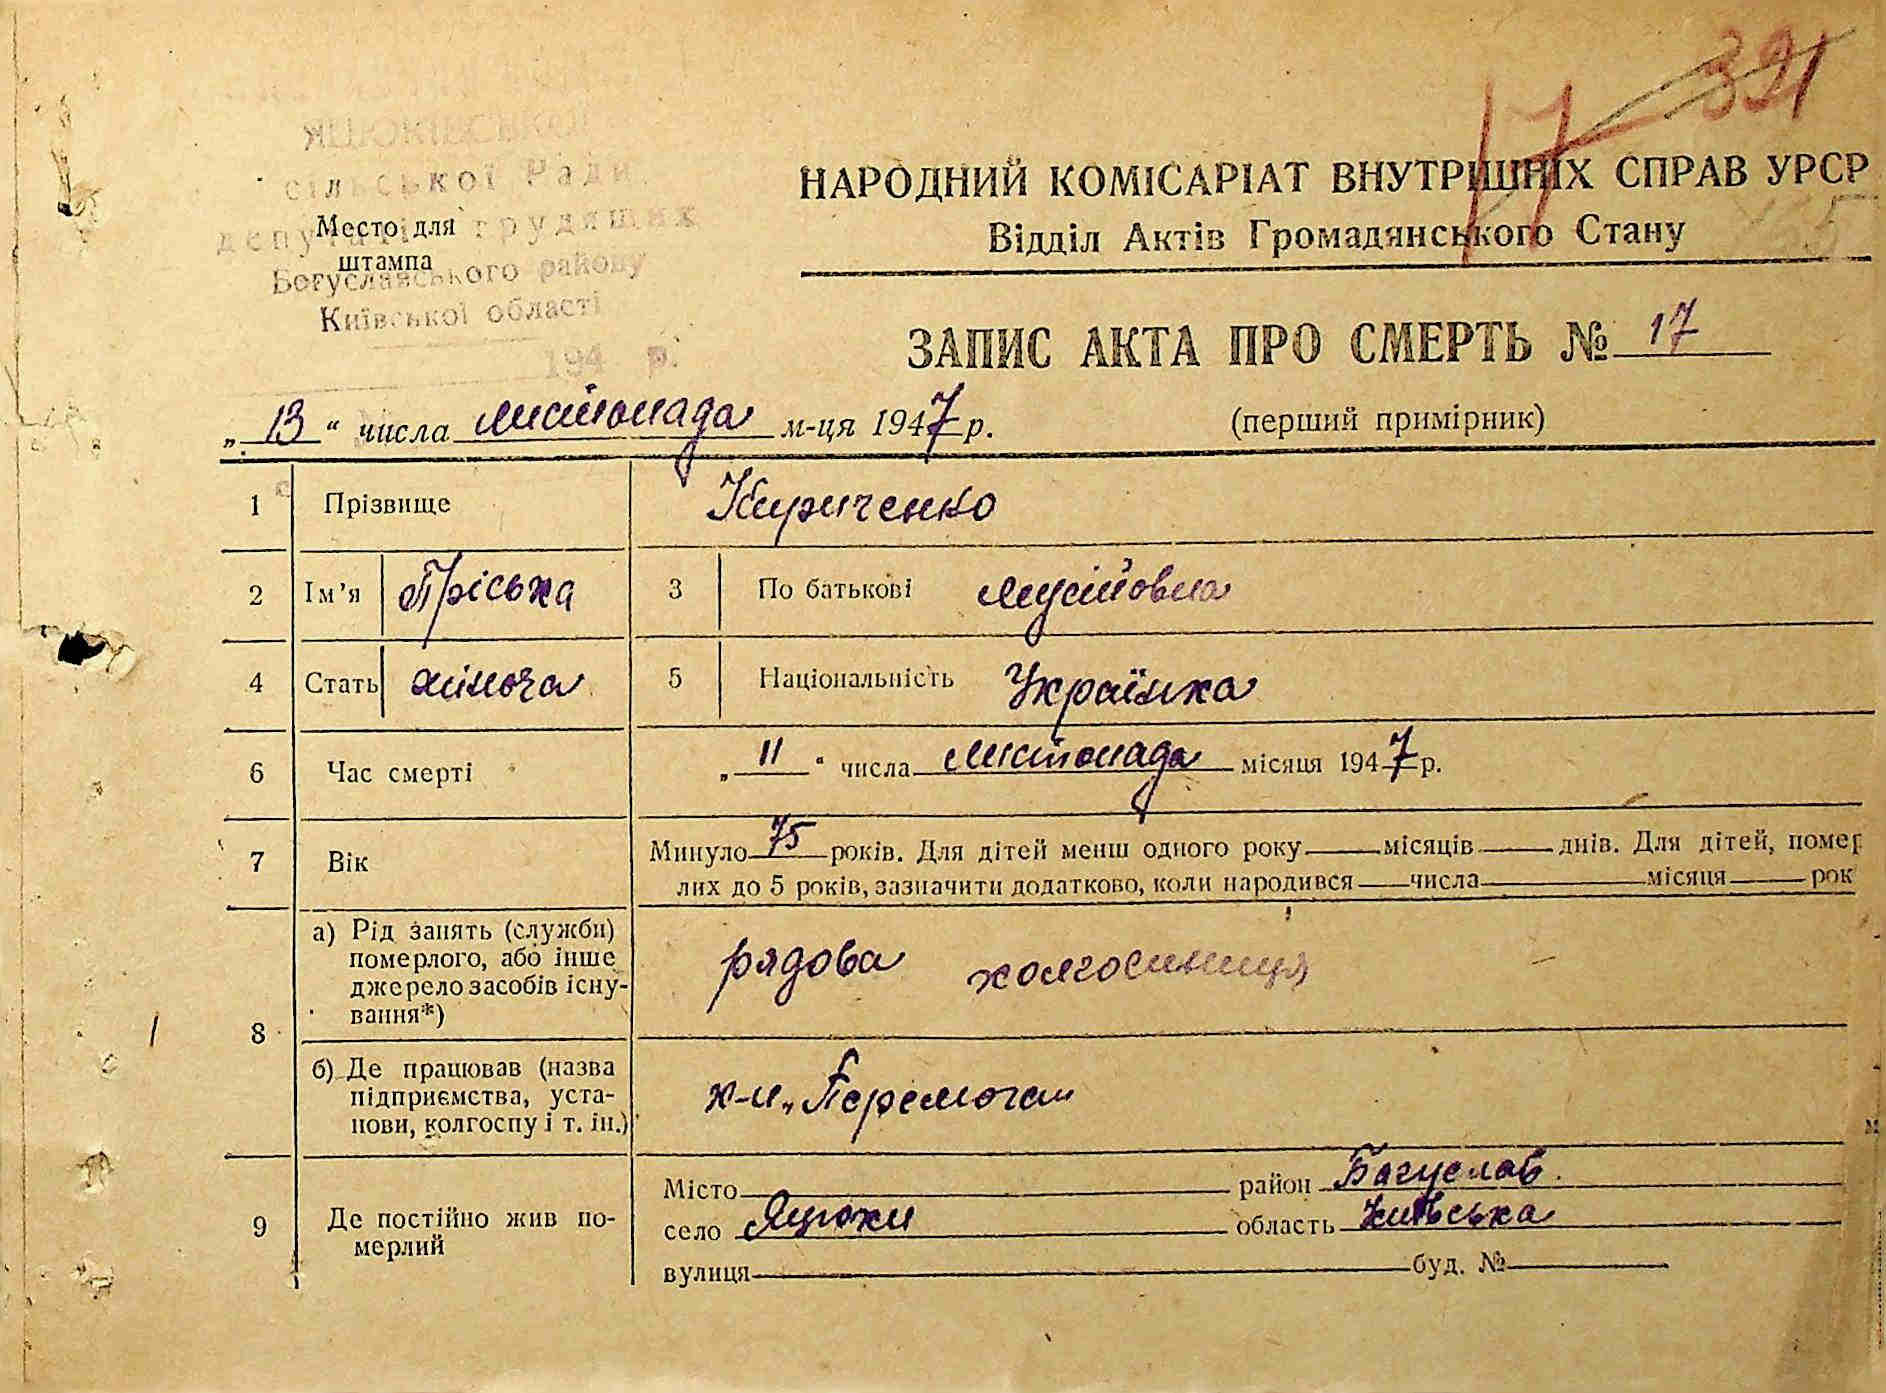 17 391
ЯЦЮКІВСЬКОЇ
сільської Ради
депутатів трудящих
Место для
штампа
Богуславського району
Київської області
194 р.
НАРОДНИЙ КОМІСАРІАТ ВНУТРІШНІХ СПРАВ УРСР
Відділ Актів Громадянського Стану
ЗАПИС АКТА ПРО СМЕРТЬ № 17
„13“ числа листопада м-ця 1947 р. (перший примірник)
1 Прізвище Кириченко
2 Ім’я Пріська 3 По батькові Мусіївна
4 Стать жіноча 5 Національність Українка
6 Час смерті „11“ числа листопада місяця 1947 р.
7 Вік Минуло 75 років. Для дітей менш одного року — місяців — днів. Для дітей, помер
лих до 5 років, зазначити додатково, коли народився — числа — місяця — рок
8 а) Рід занять (служби)
померлого, або інше
джерело засобів існу-
вання*) рядова колгоспниця
б) Де працював (назва
підприємства, уста-
нови, колгоспу і т. ін.) к-п „Перемога"
9 Де постійно жив по-
мерлий
Місто район Богуслав.
село Яцюки область Київська
вулиця буд. №